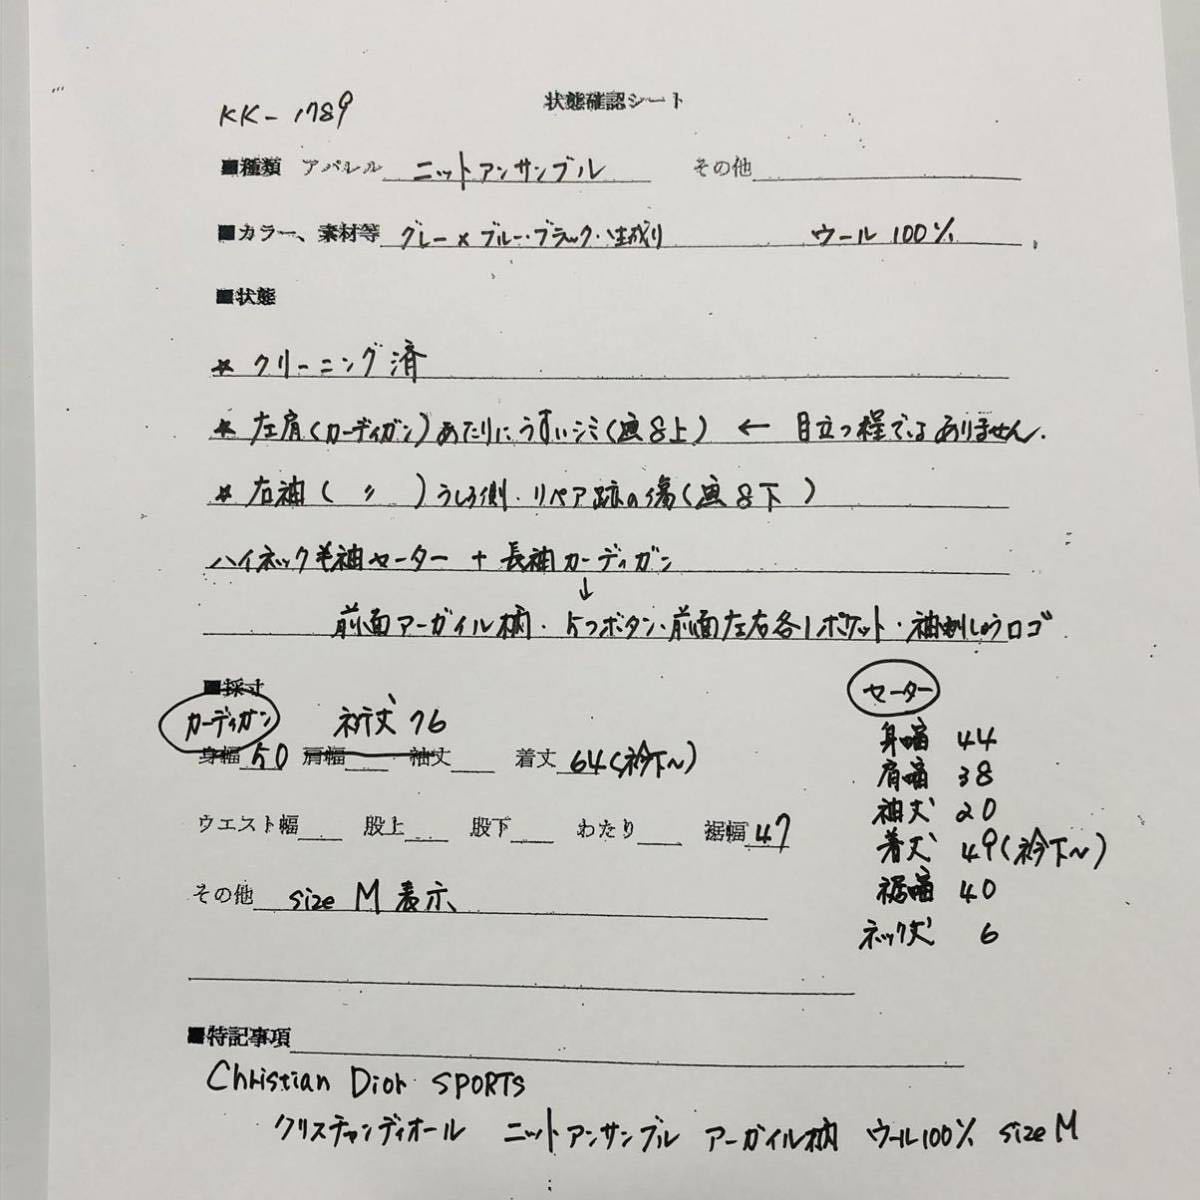 KK-1789
状態確認シート
■種類 アパレル ニットアンサンブル その他
■カラー、素材等 グレー×ブルー・ブラック・生成り ウール 100%
■状態
* クリーニング済
* 左肩(カーディガン)あたりにうすいシミ(画8上) ← 目立つ程ではありません.
* 右袖( 〃 )うしろ側・リペア跡の傷(画8下)
ハイネック半袖セーター + 長袖カーディガン
↓
前面アーガイル柄・5つボタン・前面左右各1ポケット・袖刺しゅうロゴ
■採寸
カーディガン 裄丈 76
身幅 50 肩幅 袖丈 着丈 64(衿下~)
ウエスト幅 股上 股下 わたり 裾幅 47
その他 size M 表示
セーター
身幅 44
肩幅 38
袖丈 20
着丈 49(衿下~)
裾幅 40
ネック丈 6
■特記事項
Christian Dior SPORTS
クリスチャンディオール ニットアンサンブル アーガイル柄 ウール100% size M